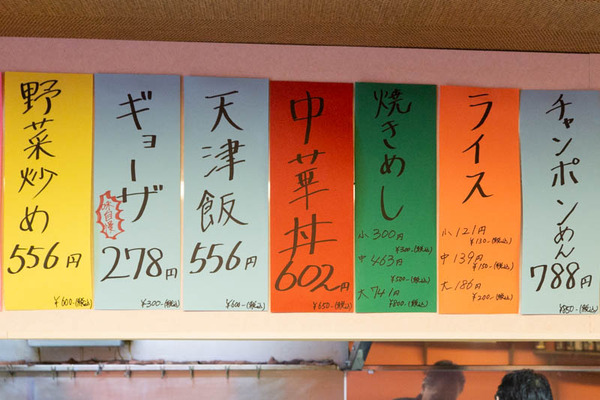 野菜炒め
556円
¥600-(税込)
ギョーザ
味自慢
278円
¥300-(税込)
天津飯
556円
¥600-(税込)
中華丼
602円
¥650-(税込)
焼きめし
小 300円
¥300-(税込)
中 463円
¥500-(税込)
大 741円
¥800-(税込)
ライス
小 121円
¥130-(税込)
中 139円
¥150-(税込)
大 186円
¥200-(税込)
チャンポンめん
788円
¥850-(税込)